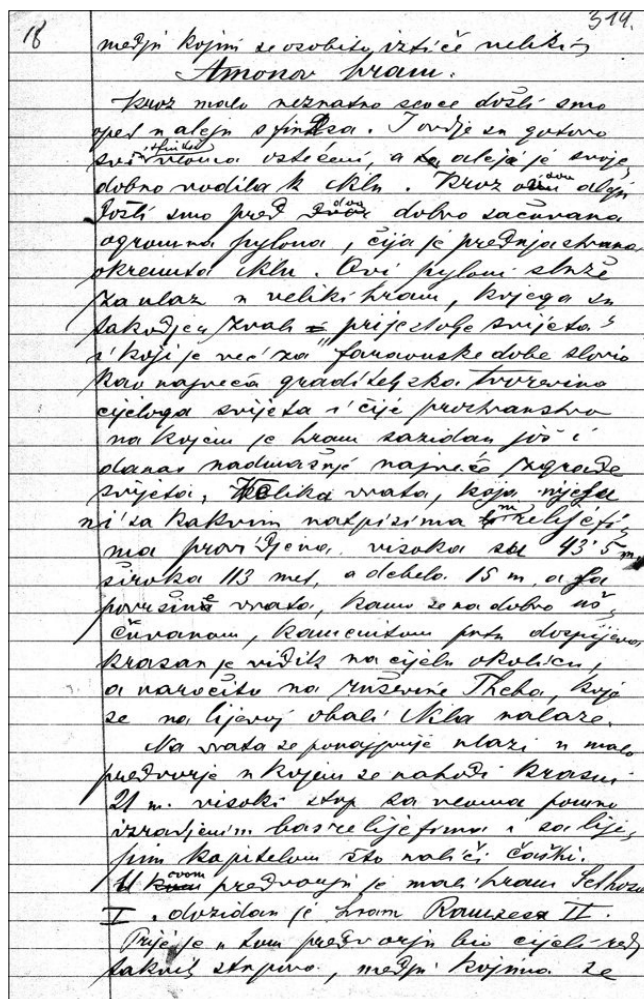 18
319.
medju kojim se osobito iztiče veliki
Amonov hram.
Kroz malo neznatno seoce došli smo
opet u aleju sfinksa. I ovdje su gotovo
svi sfinksi veoma oštećeni, a ta aleja je svoje-
dobno vodila k Nilu. Kroz ovu aleju
došli smo pred dva dobro sačuvana
ogromna pylona, čija je prednja strana
okrenuta Nilu. Ovi pyloni služe
za ulaz u veliki hram, kojega su
takodjer zvali prijestolje svijeta"
i koji je već za faraonske dobe slovio
kao najveća graditeljska tvorevina
cijeloga svijeta i čije prostranstvo
na kojem je hram sazidan još i
danas nadmašuje najveće zgrade
svijeta. Velika vrata, koja nijesu
ni sa kakvim natpisima ni reljefi-
ma providjena visoka su 43·5 m,
široka 113 met, a debela 15 m, a sa
površine vrata, kamo se na dobro uš-
čuvanom, kamenitom putu dospijeva
krasan je vidik na cijelu okolicu,
a naročito na ruševine Theba, koje
se na lijevoj obali Nila nalaze.
Na vrata se ponajprije ulazi u malo
predvorje u kojem se nahodi krasni
21 m. visoki stup sa veoma pomno
izradjenim basreljefima i sa lije-
pim kapitelom što naliči čaški.
U ovom predvorju je mali hram Sethosa
I. dozidan je hram Ramzesa II.
Prije je u tom predvorju bio cijeli red
takvih stupova, medju kojima se